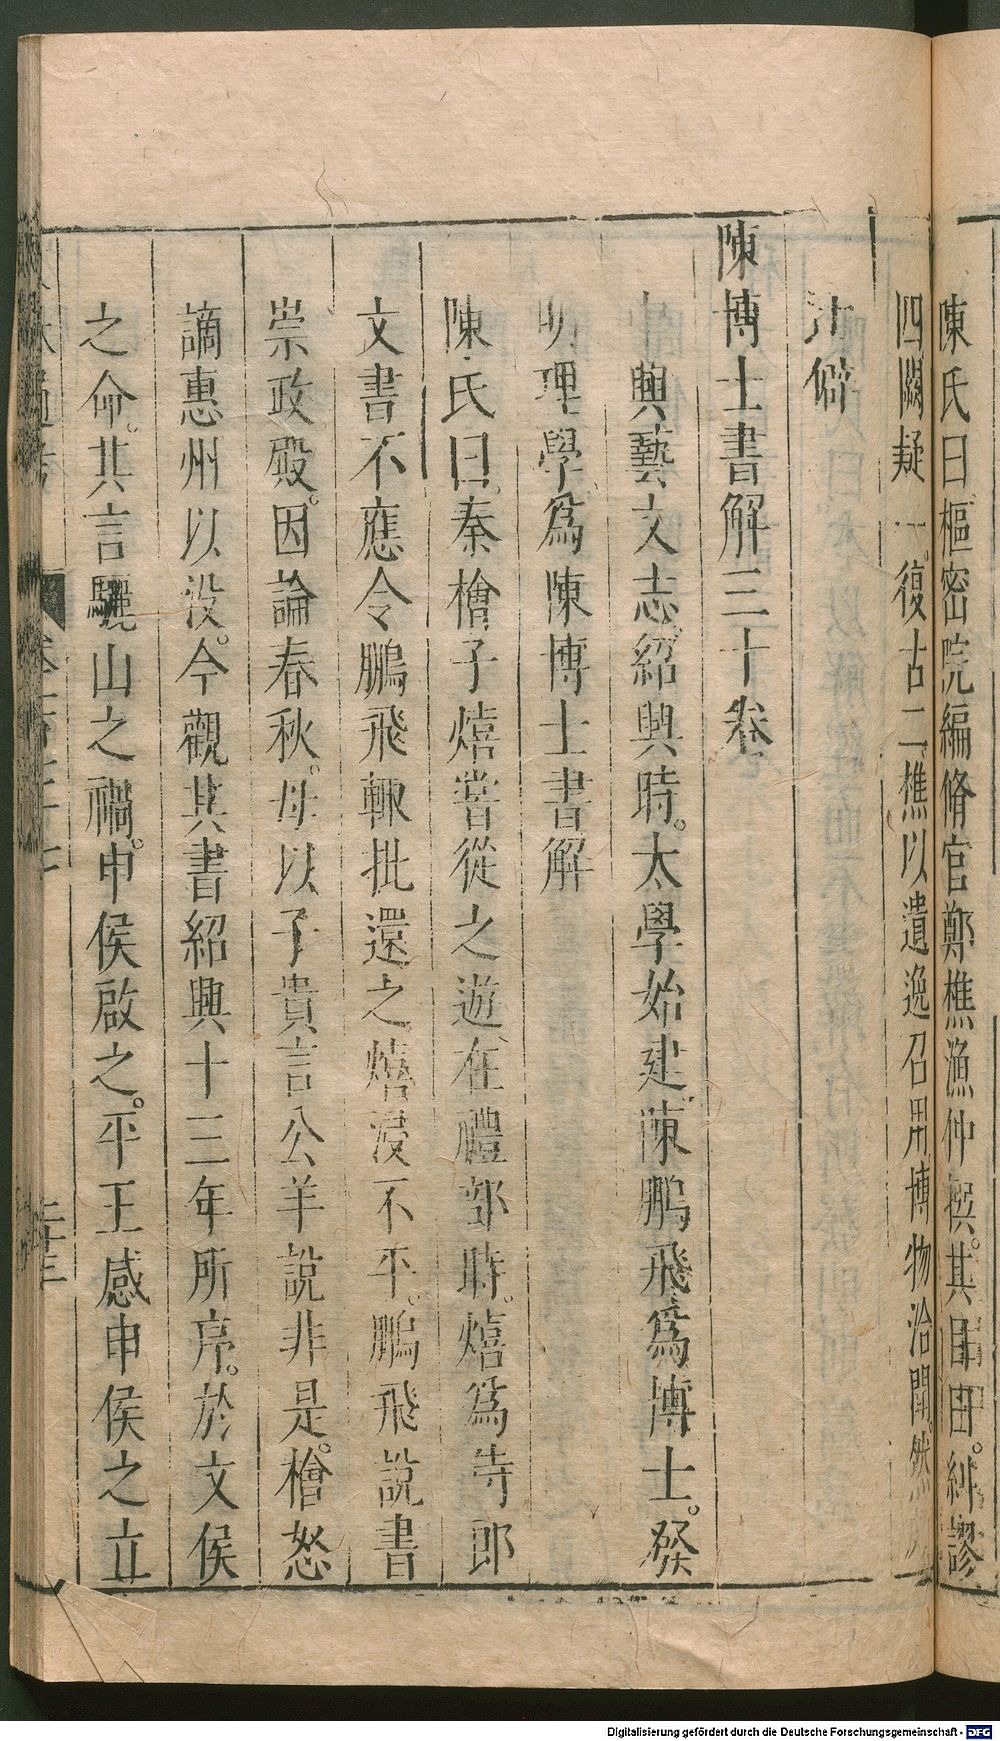 陳氏曰樞密院編脩官鄭樵漁仲撰其目曰糾謬
四闕疑一復古二樵以遺逸召用博物洽聞然
僻
陳博士書解三十卷
中興藝文志紹興時太學始建陳鵬飛爲博士發
明理學爲陳博士書解
陳氏曰秦檜子熺嘗從之遊在禮部時熺爲侍郎
文書不應令鵬飛輒批還之熺浸不平鵬飛說書
崇政殿因論春秋母以子貴言公羊說非是檜怒
謫惠州以沒今觀其書紹興十三年所序於文侯
之命其言驪山之禍申侯啟之平王感申侯之立
通考 卷一百七十七 二十三
Digitalisierung gefördert durch die Deutsche Forschungsgemeinschaft - DFG